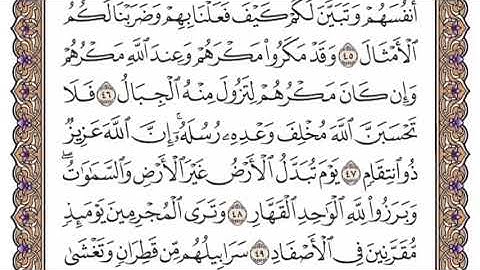 أَنفُسَهُمْ وَتَبَيَّنَ لَكُمْ كَيْفَ فَعَلْنَا بِهِمْ وَضَرَبْنَا لَكُمُ
ٱلْأَمْثَالَ ٤٥ وَقَدْ مَكَرُوا۟ مَكْرَهُمْ وَعِندَ ٱللَّهِ مَكْرُهُمْ
وَإِن كَانَ مَكْرُهُمْ لِتَزُولَ مِنْهُ ٱلْجِبَالُ ٤٦ فَلَا
تَحْسَبَنَّ ٱللَّهَ مُخْلِفَ وَعْدِهِۦ رُسُلَهُۥٓ ۗ إِنَّ ٱللَّهَ عَزِيزٌ
ذُو ٱنتِقَامٍ ٤٧ يَوْمَ تُبَدَّلُ ٱلْأَرْضُ غَيْرَ ٱلْأَرْضِ وَٱلسَّمَٰوَٰتُ ۖ
وَبَرَزُوا۟ لِلَّهِ ٱلْوَٰحِدِ ٱلْقَهَّارِ ٤٨ وَتَرَى ٱلْمُجْرِمِينَ يَوْمَئِذٍ
مُّقَرَّنِينَ فِى ٱلْأَصْفَادِ ٤٩ سَرَابِيلُهُم مِّن قَطِرَانٍ وَتَغْشَىٰ